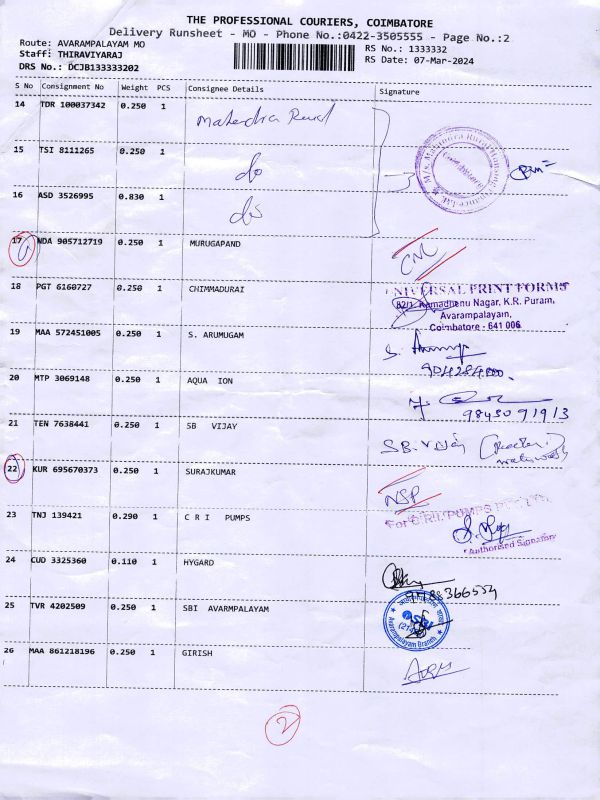 THE PROFESSIONAL COURIERS, COIMBATORE
Delivery Runsheet - MO - Phone No.:0422-3505555 - Page No.:2
Route: AVARAMPALAYAM MO
Staff: THIRAVIYARAJ
DRS No.: DCJB133333202
RS No.: 1333332
RS Date: 07-Mar-2024
S No Consignment No Weight PCS Consignee Details Signature
14 TDR 100037342 0.250 1 Mahendra Rural
15 TSI 8111265 0.250 1 do
16 ASD 3526995 0.830 1 do
17 NDA 905712719 0.250 1 MURUGAPAND CNL
18 PGT 6160727 0.250 1 CHIMMADURAI
UNIVERSAL PRINT FORMS
82/1, Kamadhenu Nagar, K.R. Puram,
Avarampalayan,
Coimbatore - 641 006
19 MAA 572451005 0.250 1 S. ARUMUGAM
20 MTP 3069148 0.250 1 AQUA ION
9843091913
21 TEN 7638441 0.250 1 SB VIJAY SB. Vijay
22 KUR 695670373 0.250 1 SURAJKUMAR NSP
23 TNJ 139421 0.290 1 C R I PUMPS
For C.R.I. PUMPS
Authorised Signatory
24 CUD 3325360 0.110 1 HYGARD
9788366554
25 TVR 4202509 0.250 1 SBI AVARMPALAYAM
Avarampalayam Branch
26 MAA 861218196 0.250 1 GIRISH
2